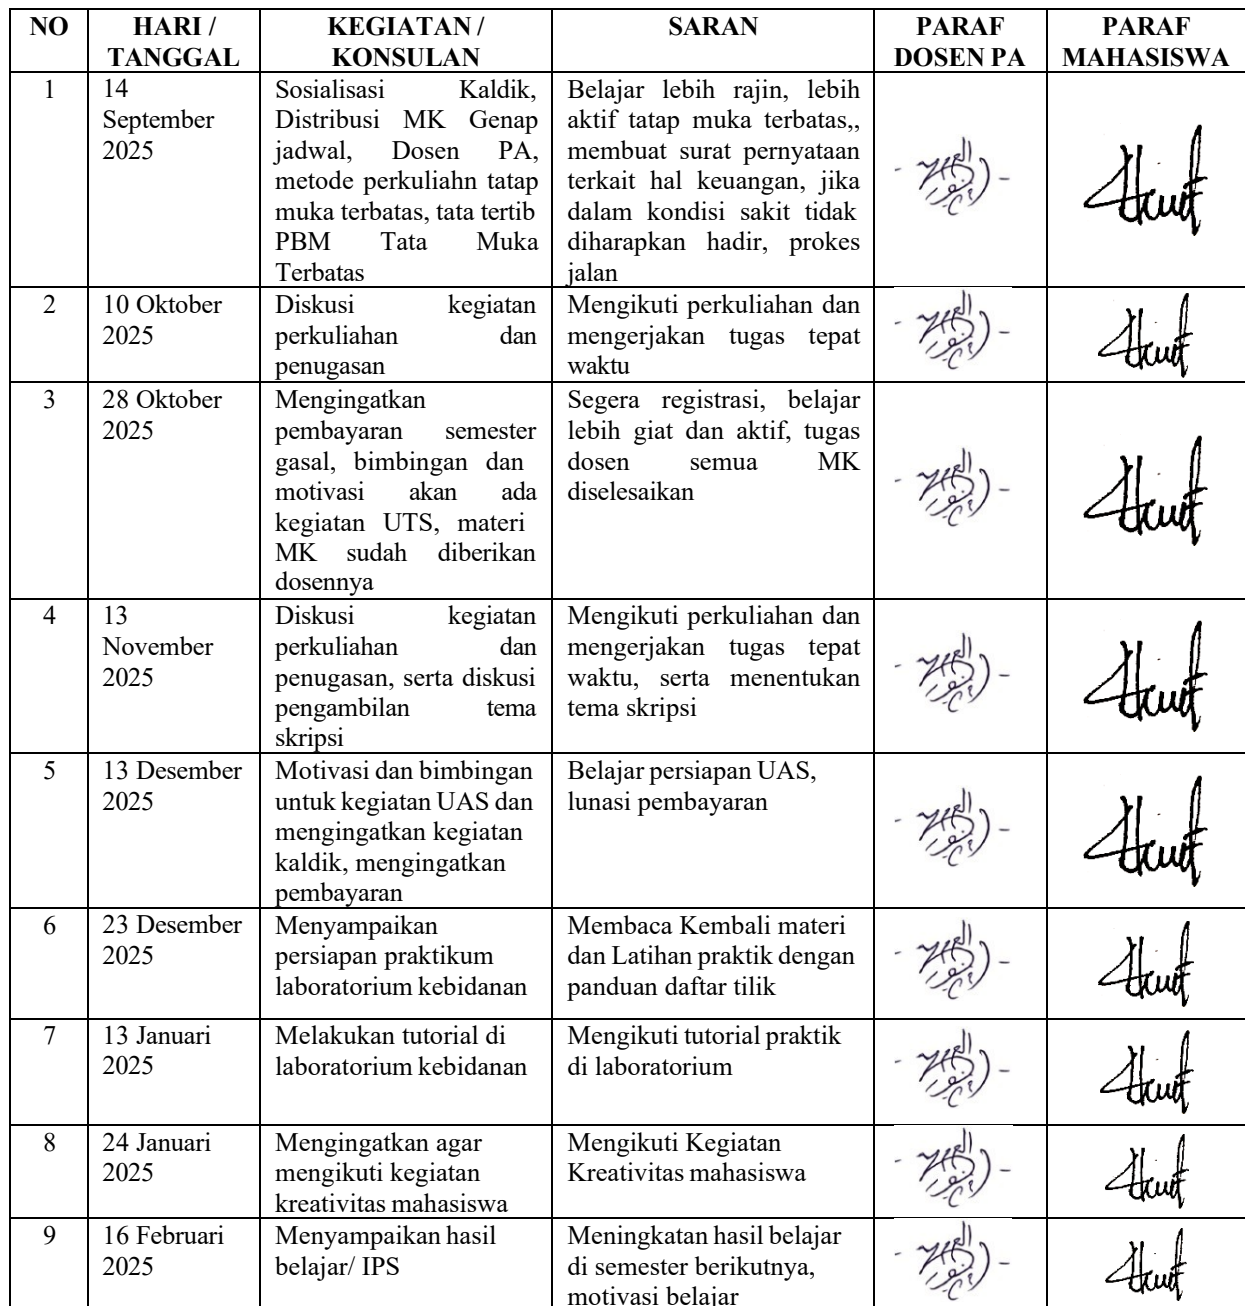 NO
HARI /
TANGGAL
KEGIATAN /
KONSULAN
SARAN
PARAF
DOSEN PA
PARAF
MAHASISWA
1
14
September
2025
Sosialisasi Kaldik,
Distribusi MK Genap
jadwal, Dosen PA,
metode perkuliahn tatap
muka terbatas, tata tertib
PBM Tata Muka
Terbatas
Belajar lebih rajin, lebih
aktif tatap muka terbatas,,
membuat surat pernyataan
terkait hal keuangan, jika
dalam kondisi sakit tidak
diharapkan hadir, prokes
jalan
2
10 Oktober
2025
Diskusi kegiatan
perkuliahan dan
penugasan
Mengikuti perkuliahan dan
mengerjakan tugas tepat
waktu
3
28 Oktober
2025
Mengingatkan
pembayaran semester
gasal, bimbingan dan
motivasi akan ada
kegiatan UTS, materi
MK sudah diberikan
dosennya
Segera registrasi, belajar
lebih giat dan aktif, tugas
dosen semua MK
diselesaikan
4
13
November
2025
Diskusi kegiatan
perkuliahan dan
penugasan, serta diskusi
pengambilan tema
skripsi
Mengikuti perkuliahan dan
mengerjakan tugas tepat
waktu, serta menentukan
tema skripsi
5
13 Desember
2025
Motivasi dan bimbingan
untuk kegiatan UAS dan
mengingatkan kegiatan
kaldik, mengingatkan
pembayaran
Belajar persiapan UAS,
lunasi pembayaran
6
23 Desember
2025
Menyampaikan
persiapan praktikum
laboratorium kebidanan
Membaca Kembali materi
dan Latihan praktik dengan
panduan daftar tilik
7
13 Januari
2025
Melakukan tutorial di
laboratorium kebidanan
Mengikuti tutorial praktik
di laboratorium
8
24 Januari
2025
Mengingatkan agar
mengikuti kegiatan
kreativitas mahasiswa
Mengikuti Kegiatan
Kreativitas mahasiswa
9
16 Februari
2025
Menyampaikan hasil
belajar/ IPS
Meningkatan hasil belajar
di semester berikutnya,
motivasi belajar